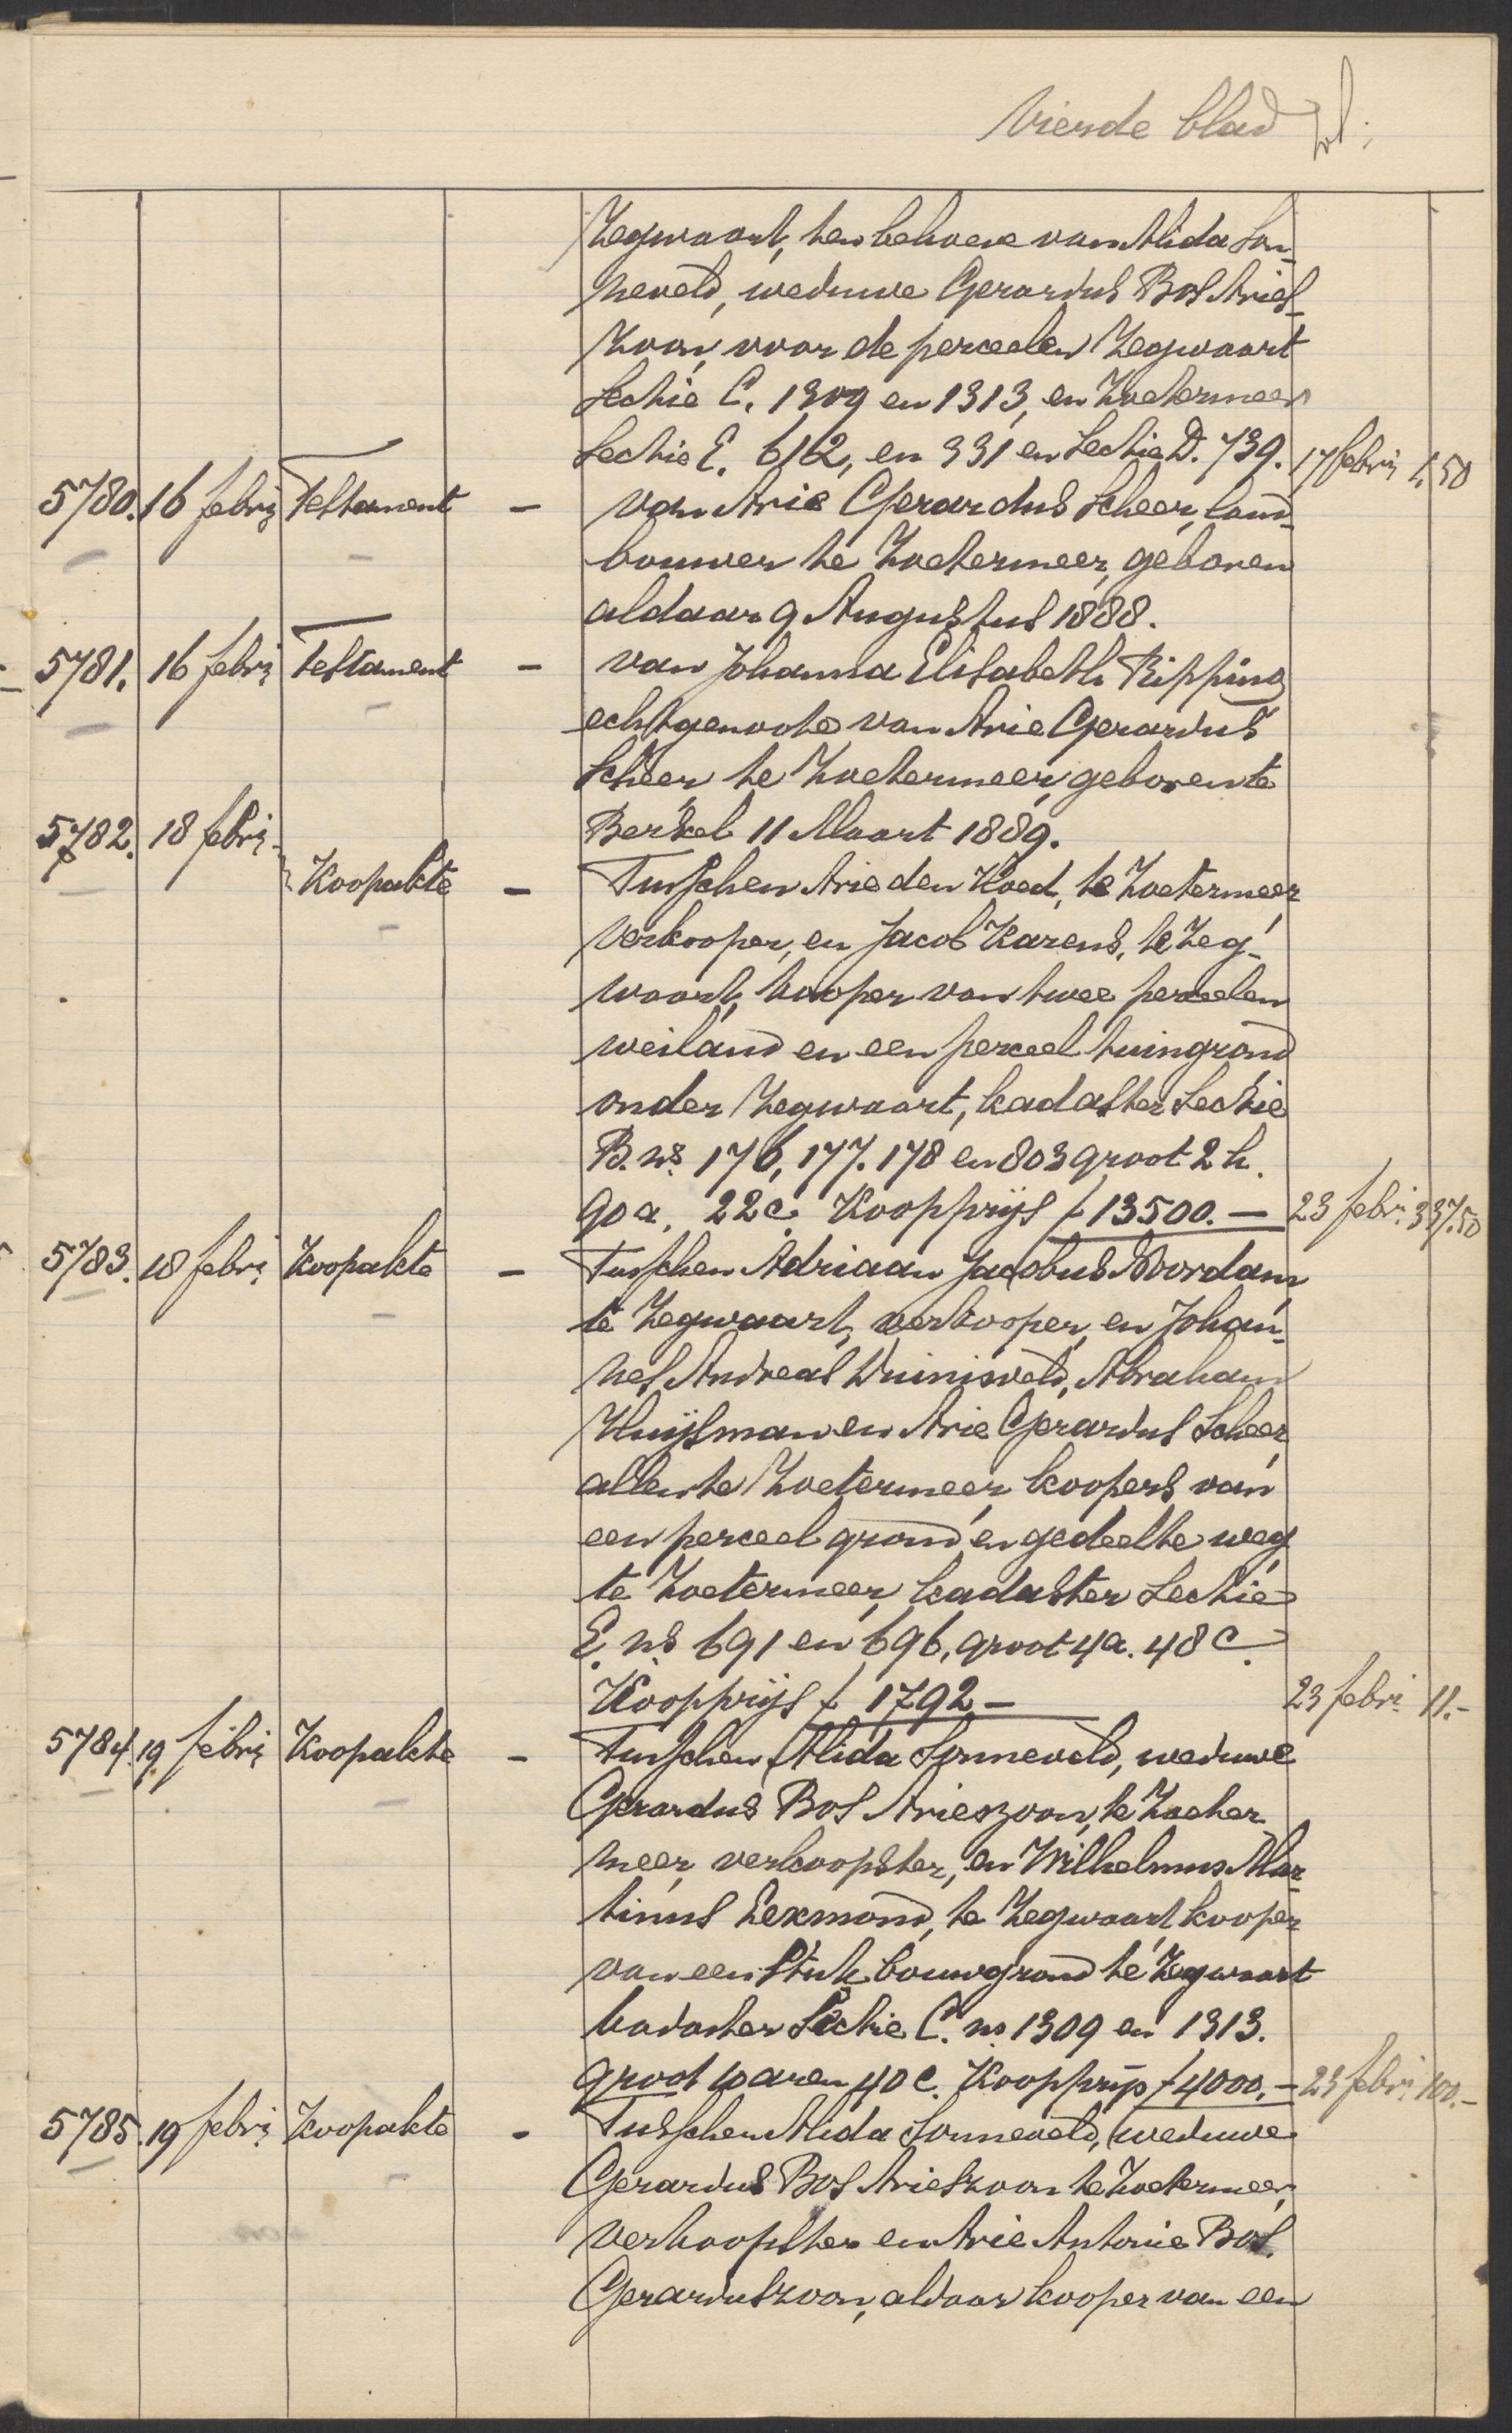 Vierde blad
Zegwaart, ten behoeve van Alida Son-
neveld, weduwe Gerardus Bos Aries-
zoon, voor de perceelen Zegwaart
Sectie C. 1309 en 1313, en Zoetermeer
Sectie E. 612, en 331 en Sectie D. 739. 17 febri 1.50
5780. 16 febri Testament - van Arie Gerardus Scheer, land-
bouwer te Zoetermeer, geboren
aldaar 9 Augustus 1888.
5781. 16 febri Testament - van Johanna Elisabeth Ripping
echtgenoote van Arie Gerardus
Scheer te Zoetermeer, geboren te
5782. 18 febri Berkel 11 Maart 1889.
Koopakte - Tusschen Arie den Hoed, te Zoetermeer
verkooper, en Jacob Karens, te Zeg-
waart, kooper van twee perceelen
weiland en een perceel tuingrond
onder Zegwaart, kadaster Sectie
B. ns. 176, 177. 178 en 803 groot 2 h.
90 a. 22 c. Koopprijs f 13500.- 23 febri 337.50
5783. 18 febri Koopakte - Tusschen Adriaan Jacobus Noordam
te Zegwaart, verkooper, en Johan-
nes Andreas Duinisveld, Abraham
Huijsman en Arie Gerardus Scheer
allen te Zoetermeer, koopers van
een perceel grond en gedeelte weg
te Zoetermeer, kadaster Sectie
E. ns. 691 en 696, groot 4 a. 48 c.
Koopprijs f 1792- 23 febri 11.-
5784. 19 febri Koopakte - Tusschen Alida Sonneveld, weduwe
Gerardus Bos Arieszoon, te Zoeter-
meer, verkoopster, en Wilhelmus Mar-
tinus Eekmond, te Zegwaart kooper
van een stuk bouwgrond te Zegwaart
kadaster Sectie C. ns. 1309 en 1313.
groot 10 aren 40 c. Koopprijs f 4000.- 23 febri 100.-
5785. 19 febri Koopakte - Tusschen Alida Sonneveld, weduwe
Gerardus Bos Arieszoon te Zoetermeer,
verkoopster en Arie Antonie Bos.
Gerarduszoon, aldaar kooper van een